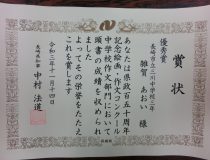 賞状
優秀賞
中学校二年
あおい 様
あなたは県政百五十周年
記念絵画・作文コンクール
中学校作文部門において
頭書の成績を収められ
ました
よってその栄誉をたたえ
これを賞します
令和三年十一月十四日
長崎県知事 中村法道